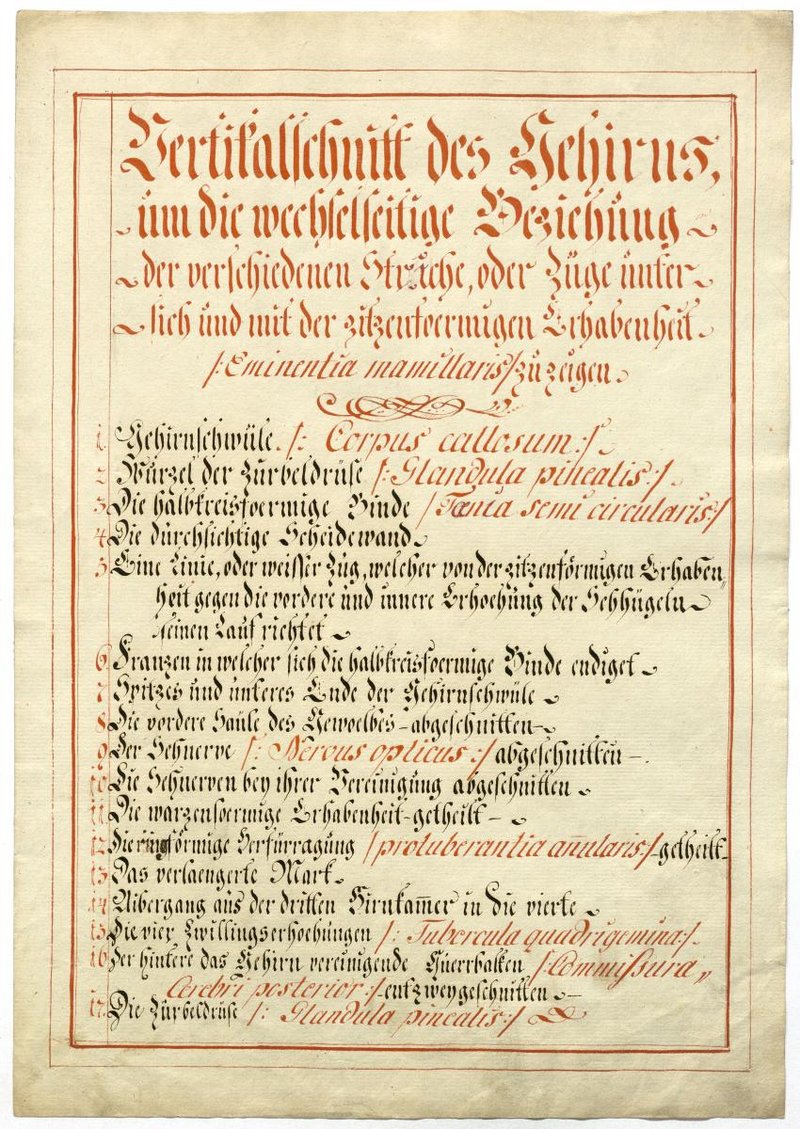 Vertikalschnitt des Gehirns,
um die wechselseitige Beziehung
der verschiedenen Striche, oder Züge unter
sich und mit der zitzenfoermigen Erhabenheit
/: Eminentia mamillaris /: zu zeigen
1. Gehirnschwüle /: Corpus callosum :/
2. Wurzel der Zürbeldrüse /: Glandula pinealis :/
3. Die halbkreisfoermige Binde /: Tænia semi circularis :/
4. Die dürchsichtige Scheidewand
5. Eine Linie, oder weisser Zug, welcher von der zitzenförmigen Erhaben„
heit gegen die vordere und innere Erhoehüng der Sehhügeln
seinen Lauf richtet
6. Franzen in welcher sich die halbkreisfoermige Binde endiget
7. Spitzes und unteres Ende der Gehirnschwüle
8. Die vordere Saüle des Gewoelbes - abgeschnitten -
9. Der Sehnerve /: Nervus opticus :/ abgeschnitten -
10. Die Sehnerven bey ihrer Vereinigüng abgeschnitten
11. Die warzenfoermige Erhabenheit - getheilt -
12. Die ringförmige Herfürragüng /: protuberantia añularis :/ - getheilt
13. Das verlaengerte Mark
14. Uibergang aus der dritten Hirnkam̃er in die vierte
15. Die vier Zwillingserhoehüngen /: Tubercula quadrigemina :/
16. Der hintere das Gehirn vereinigende Querrbalken /: Commissura „
Cerebri posterior :/ entzweygeschnitten -
17. Die Zürbeldrüse /: Glandula pinealis :/